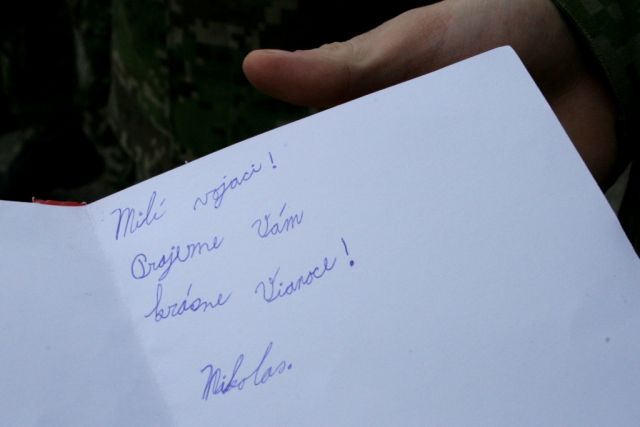 Milí vojaci!
Prajeme Vám
krásne Vianoce!
Nikolas.